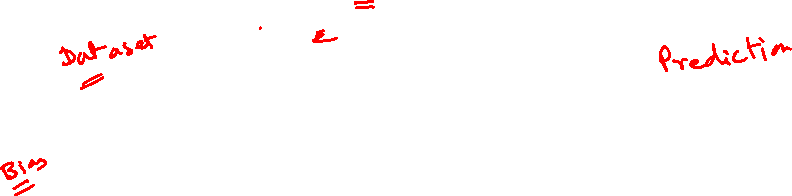 Dataset
Prediction
Bias